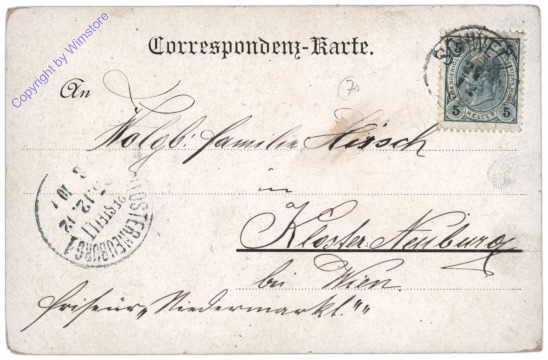 Copyright by Wimstore
Correspondenz-Karte.
An
70
Wolgb. Familie Hirsch
in
Kloster-Neuburg
bei Wien.
Friseur „Niedermarkt."
5 5
HELLER
KLOSTERNEUBURG 1
BESTELLT